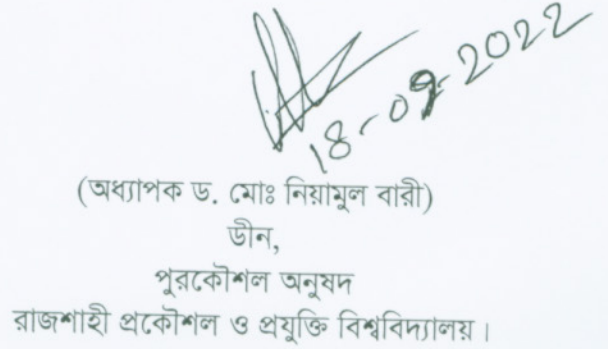 18-09-2022
(অধ্যাপক ড. মোঃ নিয়ামুল বারী)
ডীন,
পুরকৌশল অনুষদ
রাজশাহী প্রকৌশল ও প্রযুক্তি বিশ্ববিদ্যালয়।